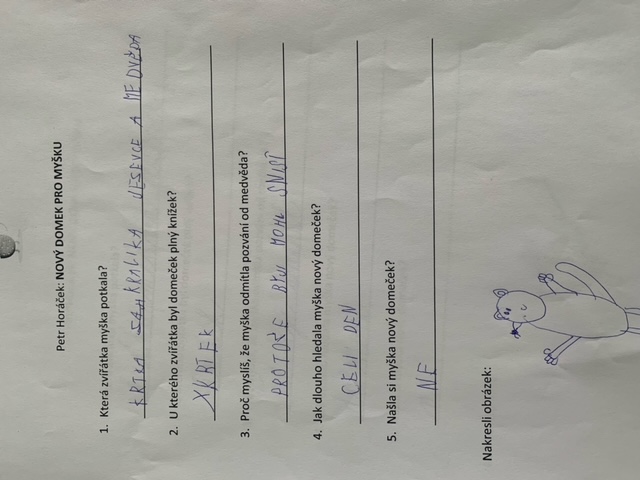 Petr Horáček: NOVÝ DOMEK PRO MYŠKU
1. Která zvířátka myška potkala?
KRTKA KRALIKA JESEVCE A MEDVĚDA
2. U kterého zvířátka byl domeček plný knížek?
KRTEK
3. Proč myslíš, že myška odmítla pozvání od medvěda?
PROTOŽE MOHL SNIST
4. Jak dlouho hledala myška nový domeček?
CELI DEN
5. Našla si myška nový domeček?
NE
Nakresli obrázek: